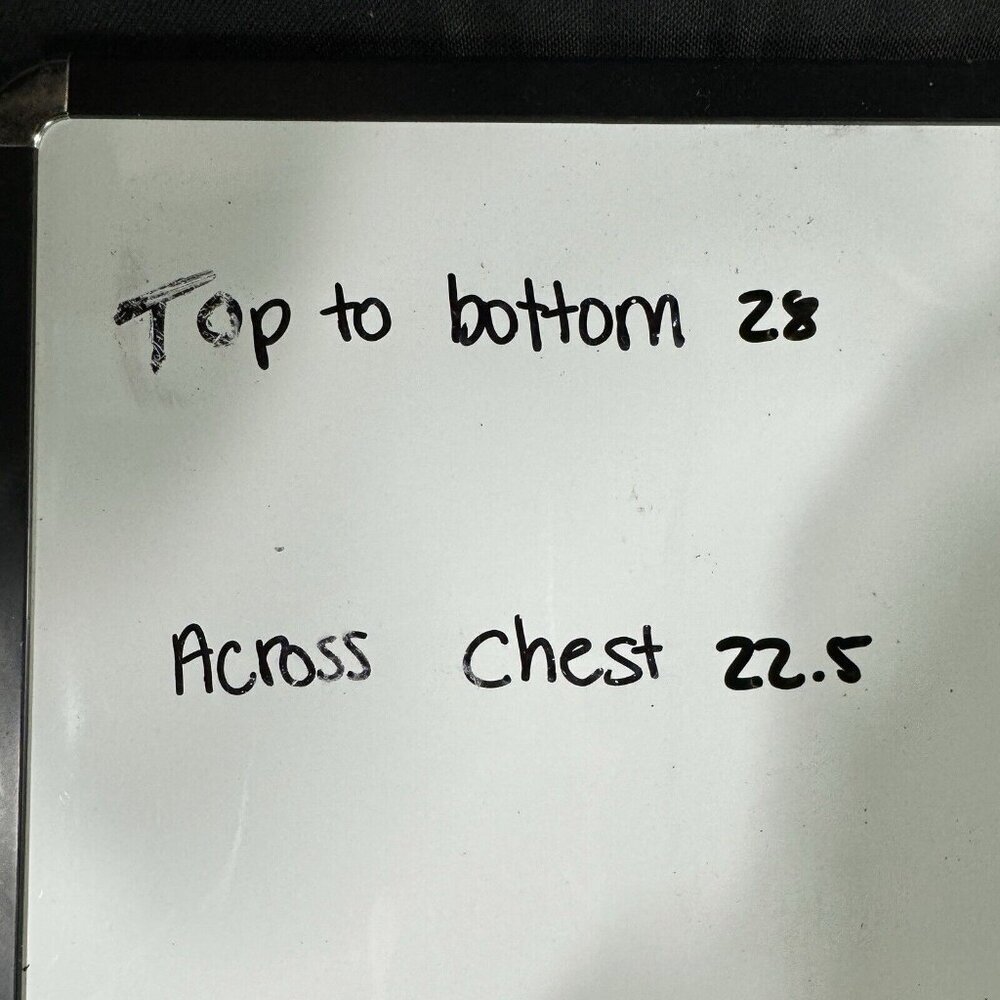 Top to bottom 28
Across Chest 22.5